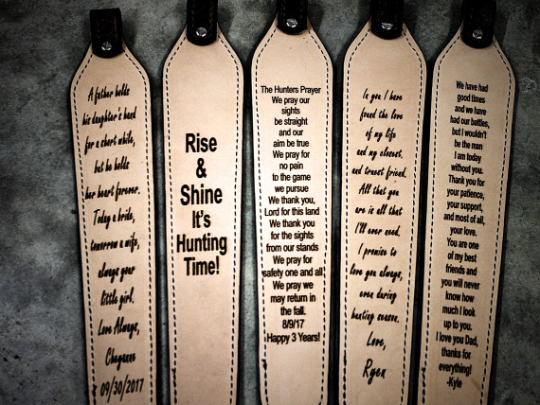 A father holds
his daughter's hand
for a short while,
but he holds
her heart forever.
Today a bride,
tomorrow a wife,
always your
little girl.
Love Always,
Cheyenne
09/30/2017
Rise
&
Shine
It's
Hunting
Time!
The Hunters Prayer
We pray our
sights
be straight
and our
aim be true
We pray for
no pain
to the game
we pursue
We thank you,
Lord for this land
We thank you
for the sights
from our stands
We pray for
safety one and all
We pray we
may return in
the fall.
8/9/17
Happy 3 Years!
In you I have
found the love
of my life
and my closest,
and truest friend.
All that you
are is all that
I'll ever need.
I promise to
love you always,
even during
hunting season.
Love,
Ryen
We have had
good times
and we have
had our battles,
but I wouldn't
be the man
I am today
without you.
Thank you for
your patience,
your support,
and most of all,
your love.
You are one
of my best
friends and
you will never
know how
much I look
up to you.
I love you Dad,
thanks for
everything!
-Kyle